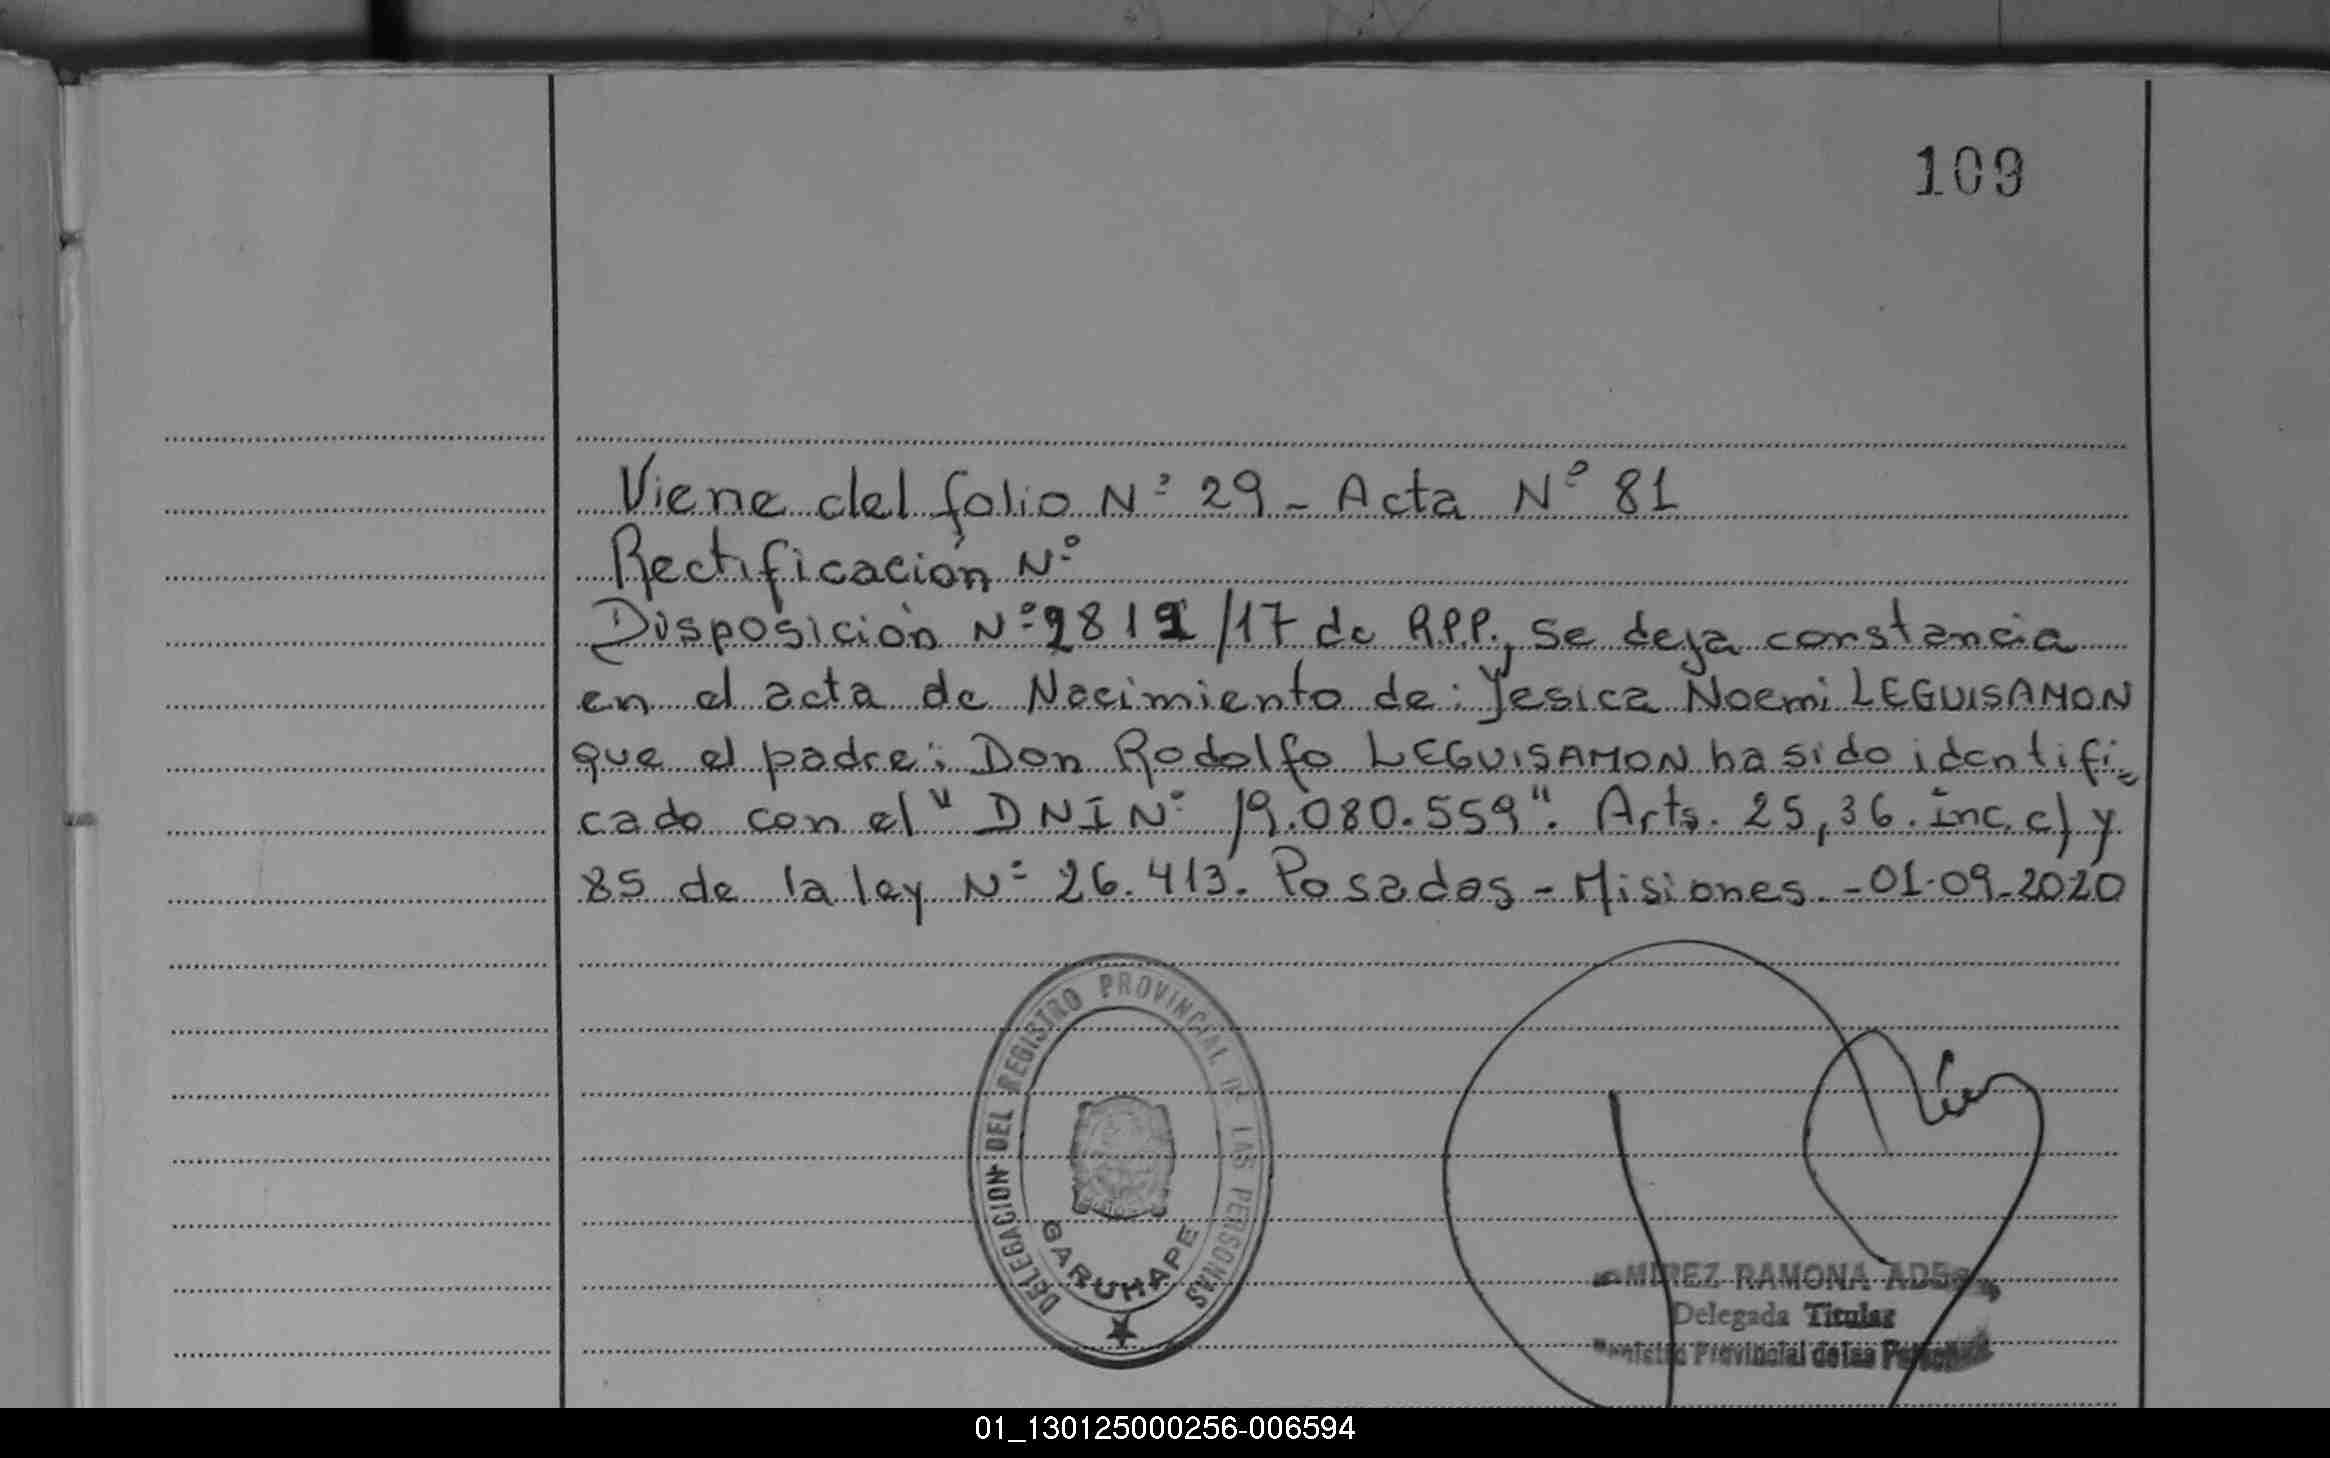 109
Viene del folio Nº 29 - Acta Nº 81
Rectificación Nº
Disposición Nº 2812/17 de R.P.P., se deja constancia
en el acta de Nacimiento de: Yesica Noemi LEGUISAMON
que el padre: Don Rodolfo LEGUISAMON ha sido identifi=
cado con el "DNI Nº 19.080.559". Arts. 25, 36. inc. c) y
85 de la ley Nº 26.413. Posadas - Misiones. - 01-09-2020
DELEGACION DEL REGISTRO PROVINCIAL DE LAS PERSONAS
GARUHAPE
RAMONA
Delegada Titular
Provincial de las
01_130125000256-006594